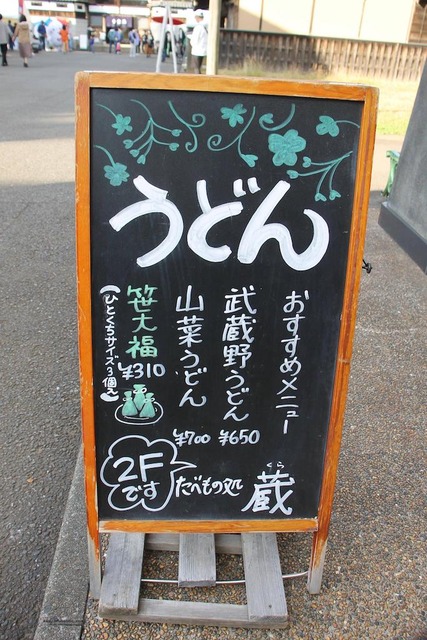 うどん
おすすめメニュー
武蔵野うどん
¥650
山菜うどん
¥700
笹大福
¥310
(ひとくちサイズ3個入)
2F
です
たべもの処
くら
蔵